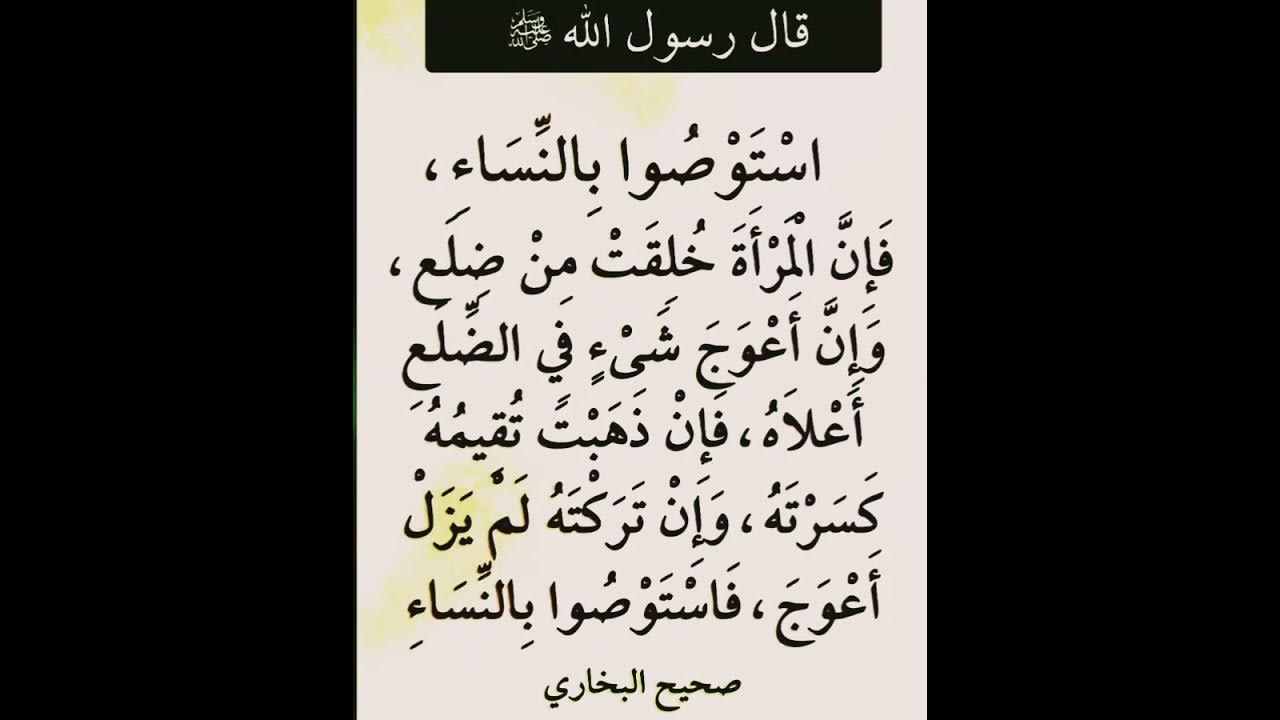 قال رسول الله ﷺ
اسْتَوْصُوا بِالنِّسَاءِ،
فَإِنَّ الْمَرْأَةَ خُلِقَتْ مِنْ ضِلَعٍ،
وَإِنَّ أَعْوَجَ شَىْءٍ فِي الضِّلَعِ
أَعْلاَهُ، فَإِنْ ذَهَبْتَ تُقِيمُهُ
كَسَرْتَهُ، وَإِنْ تَرَكْتَهُ لَمْ يَزَلْ
أَعْوَجَ، فَاسْتَوْصُوا بِالنِّسَاءِ
صحيح البخاري